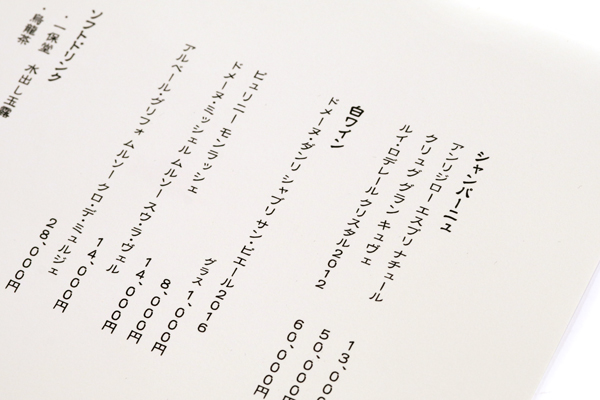 シャンパーニュ
アンリジロー エスプリナチュール 13,00
クリュグ グラン キュヴェ 50,000
ルイ・ロデレール クリスタル2012 60,000円
白ワイン
ドメーヌ・ダンリ シャブリ サン・ピエール2016
グラス 1,000円
8,000円
ピュリニー モンラッシェ 14,000円
ドメーヌ・ミッシェル ムルソー スウ・ラ・ヴェル 14,000円
アルベール・グリフォ ムルソー クロ・デ・ミュルジェ 28,000円
ソフトドリンク
・一保堂 水出し玉露
・烏龍茶